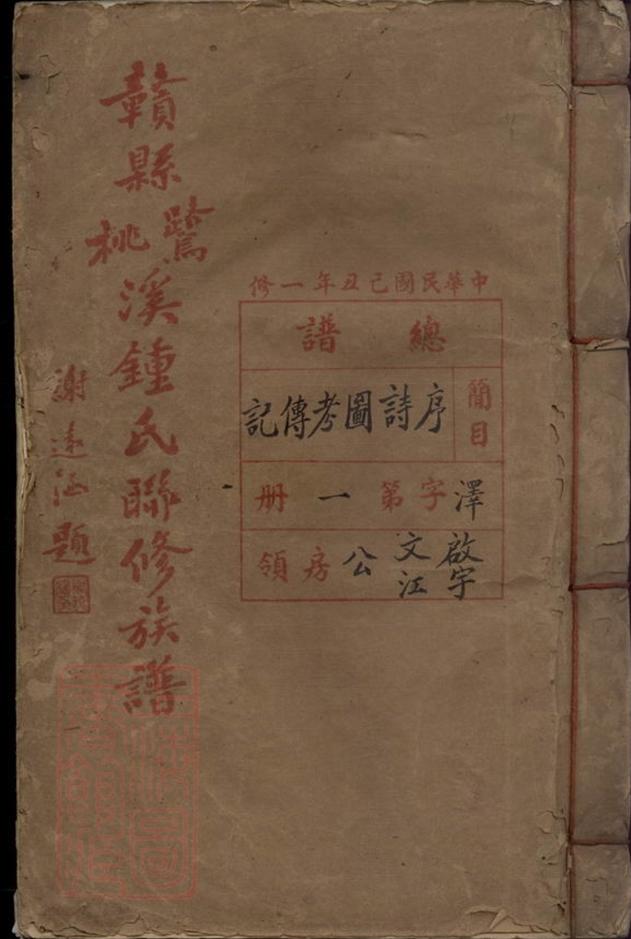 中華民國己丑年一修
總譜
簡目
序詩圖考傳記
澤字第一册
啟宇文江公房領
贛縣鷺桃溪鍾氏聯修族譜
謝遠涵題